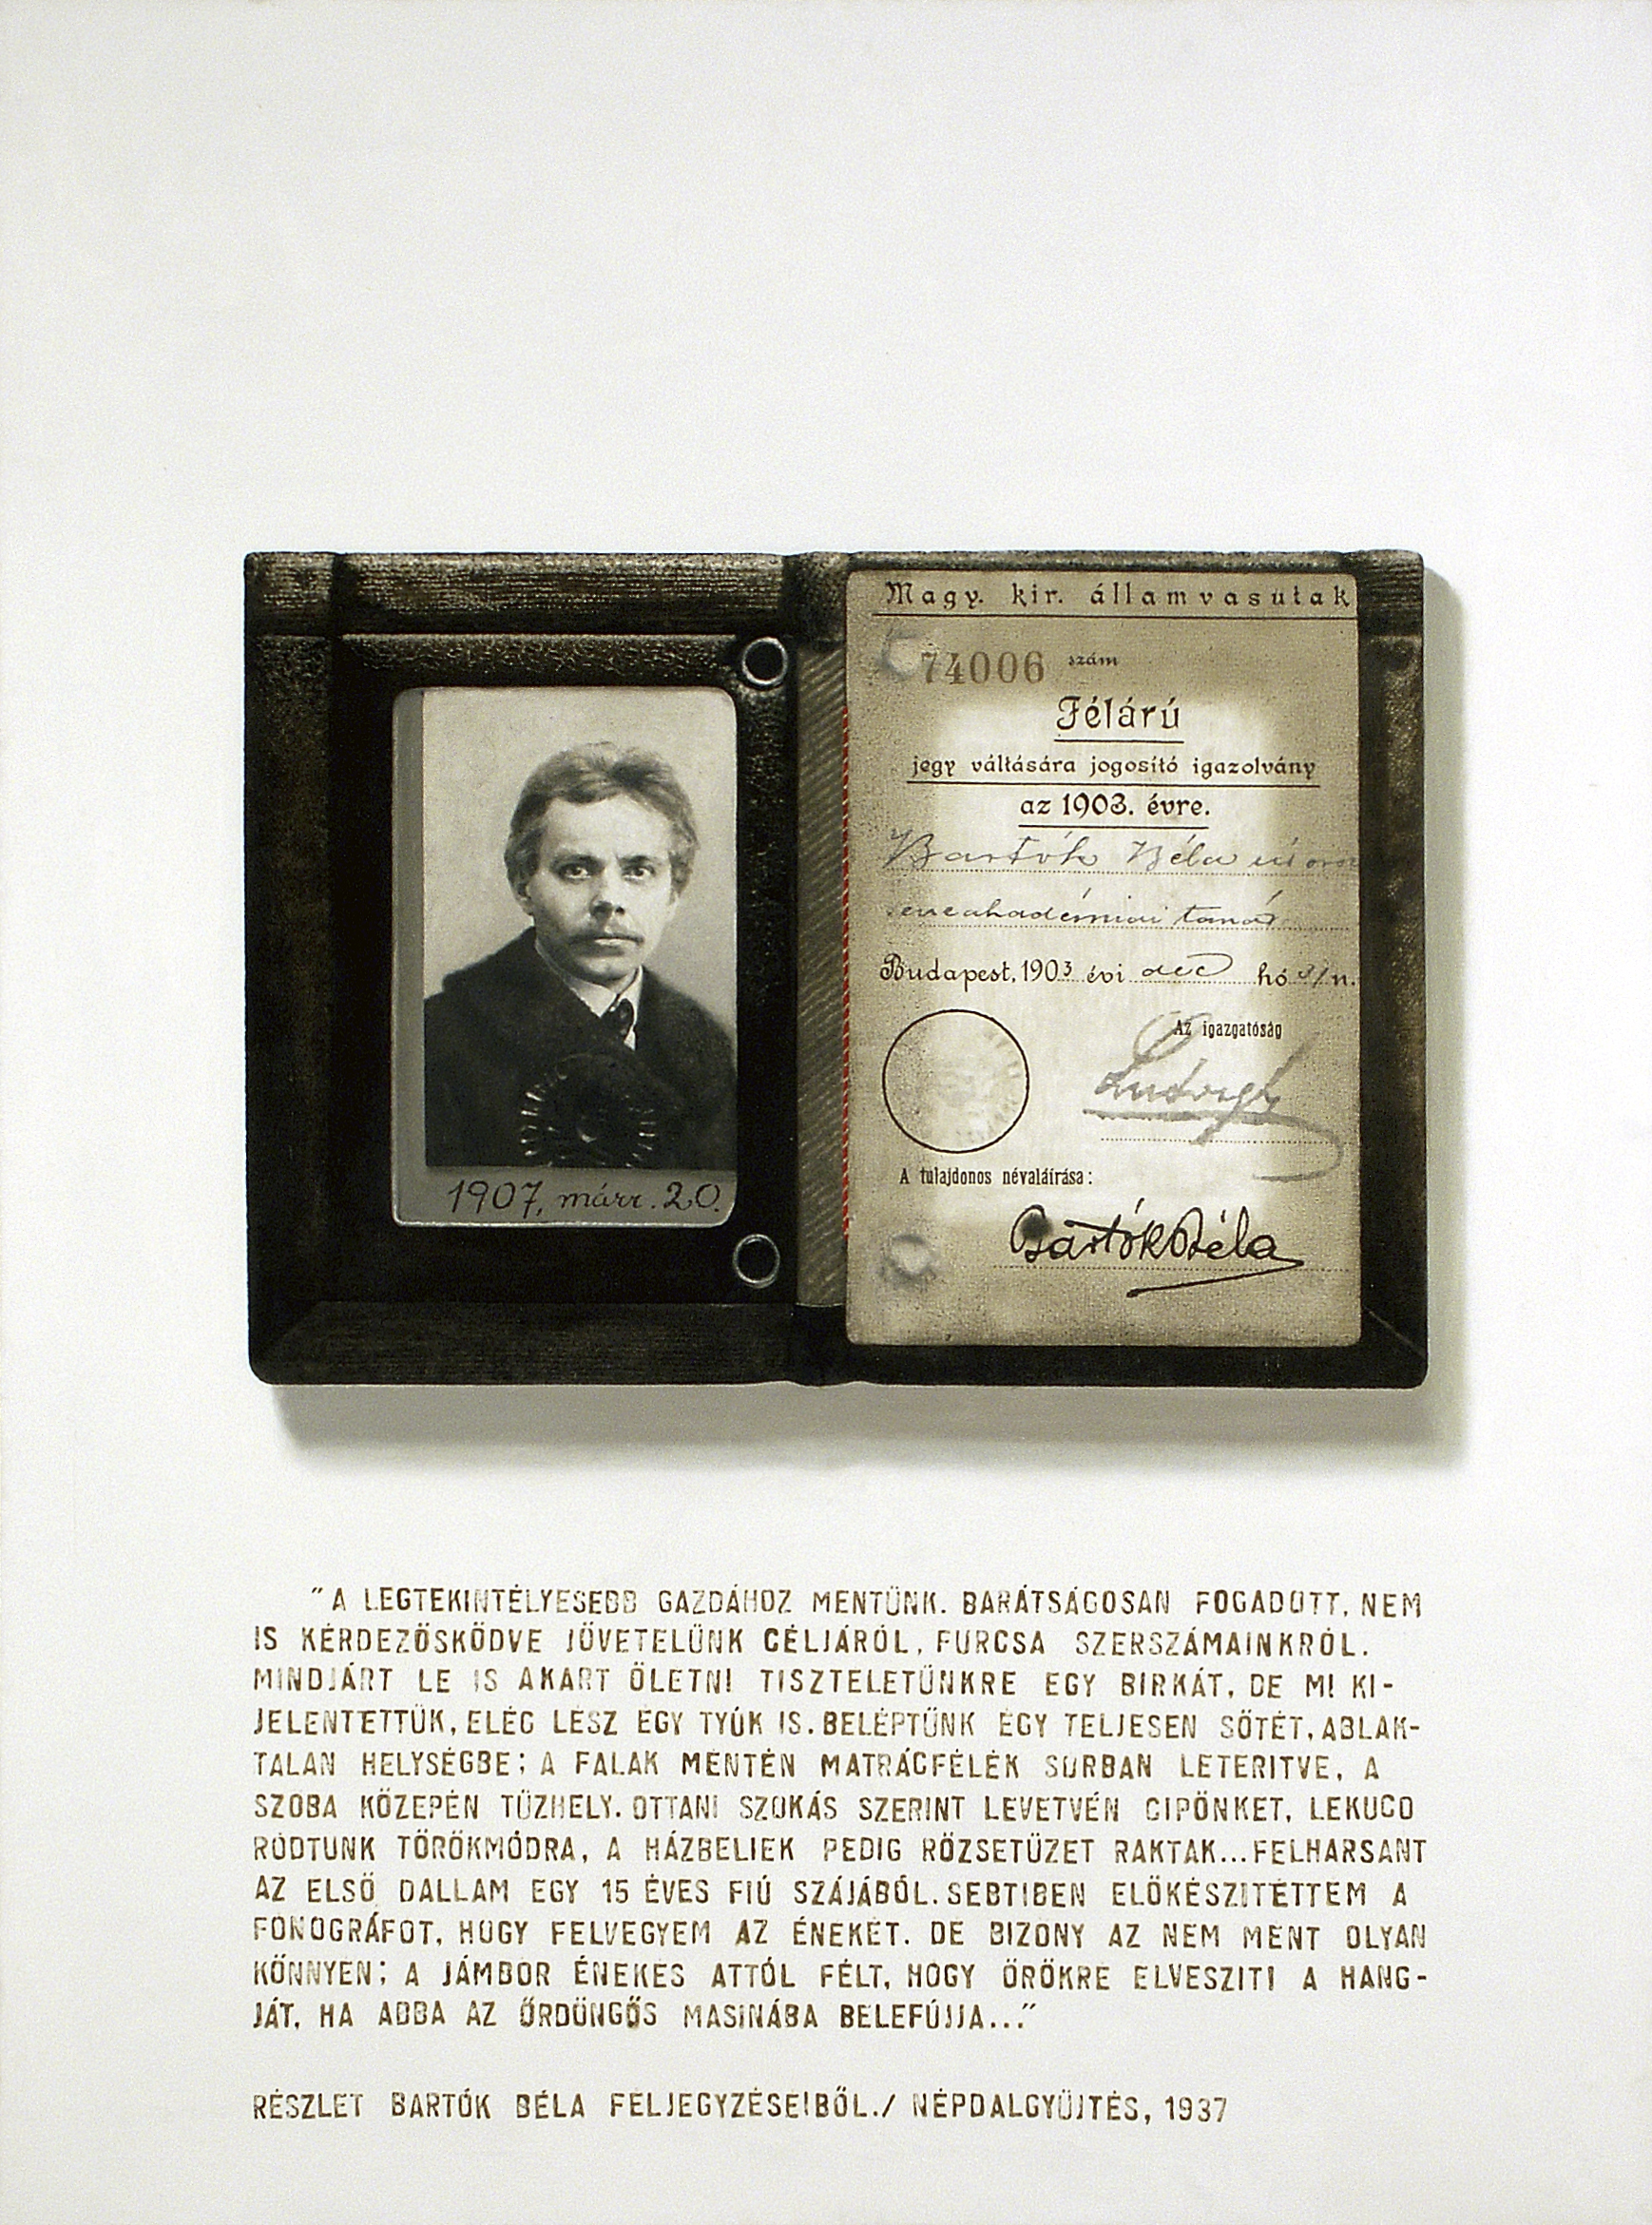 Magy. kir. államvasutak
74006 szám
Félárú
jegy váltására jogosító igazolvány
az 1903. évre.
Bartók Béla úr
zeneakadémiai tanár
Budapest, 1903 évi dec hó 31 n.
Az igazgatóság
A tulajdonos névaláírása:
Bartók Béla
1907, márr. 20.
"A LEGTEKINTÉLYESEBB GAZDÁHOZ MENTÜNK. BARÁTSÁGOSAN FOGADOTT, NEM
IS KÉRDEZŐSKÖDVE JÖVETELÜNK CÉLJÁRÓL, FURCSA SZERSZÁMAINKRÓL.
MINDJÁRT LE IS AKART ÖLETNI TISZTELETÜNKRE EGY BIRKÁT, DE MI KI-
JELENTETTÜK, ELÉG LESZ EGY TYÚK IS. BELÉPTÜNK EGY TELJESEN SÖTÉT, ABLAK-
TALAN HELYSÉGBE; A FALAK MENTÉN MATRÁCFÉLÉK SORBAN LETERITVE, A
SZOBA KÖZEPÉN TŰZHELY. OTTANI SZOKÁS SZERINT LEVETVÉN CIPŐNKET, LEKUCO
RODTUNK TÖRÖKMÓDRA, A HÁZBELIEK PEDIG RŐZSETÜZET RAKTAK... FELHARSANT
AZ ELSŐ DALLAM EGY 15 ÉVES FIÚ SZÁJÁBÓL. SEBTIBEN ELŐKÉSZITETTEM A
FONOGRÁFOT, HOGY FELVEGYEM AZ ÉNEKET. DE BIZONY AZ NEM MENT OLYAN
KÖNNYEN; A JÁMBOR ÉNEKES ATTÓL FÉLT, HOGY ÖRÖKRE ELVESZITI A HANG-
JÁT, HA ABBA AZ ÖRDÖNGŐS MASINÁBA BELEFÚJJA..."
RÉSZLET BARTÓK BÉLA FELJEGYZÉSEIBŐL./ NÉPDALGYŰJTÉS, 1937